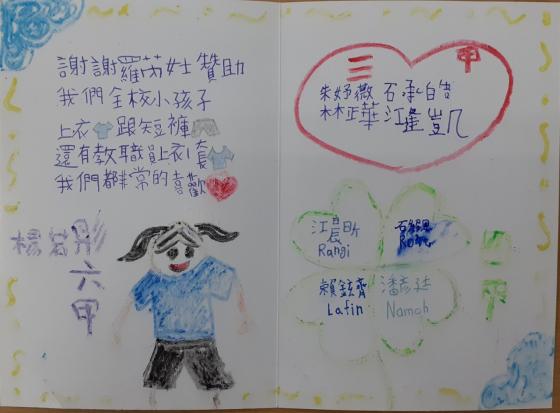 謝謝羅芮女士 贊助
我們全校小孩子
上衣👕跟短褲🩳
還有教職員上衣1套👕
我們都非常的喜歡
楊若彤
六甲
三甲
朱妤薇 石承皓
林正華 江逢凱
江晨昕
Rangi
賴鉉齊
Lafin
潘彥廷
Namoh